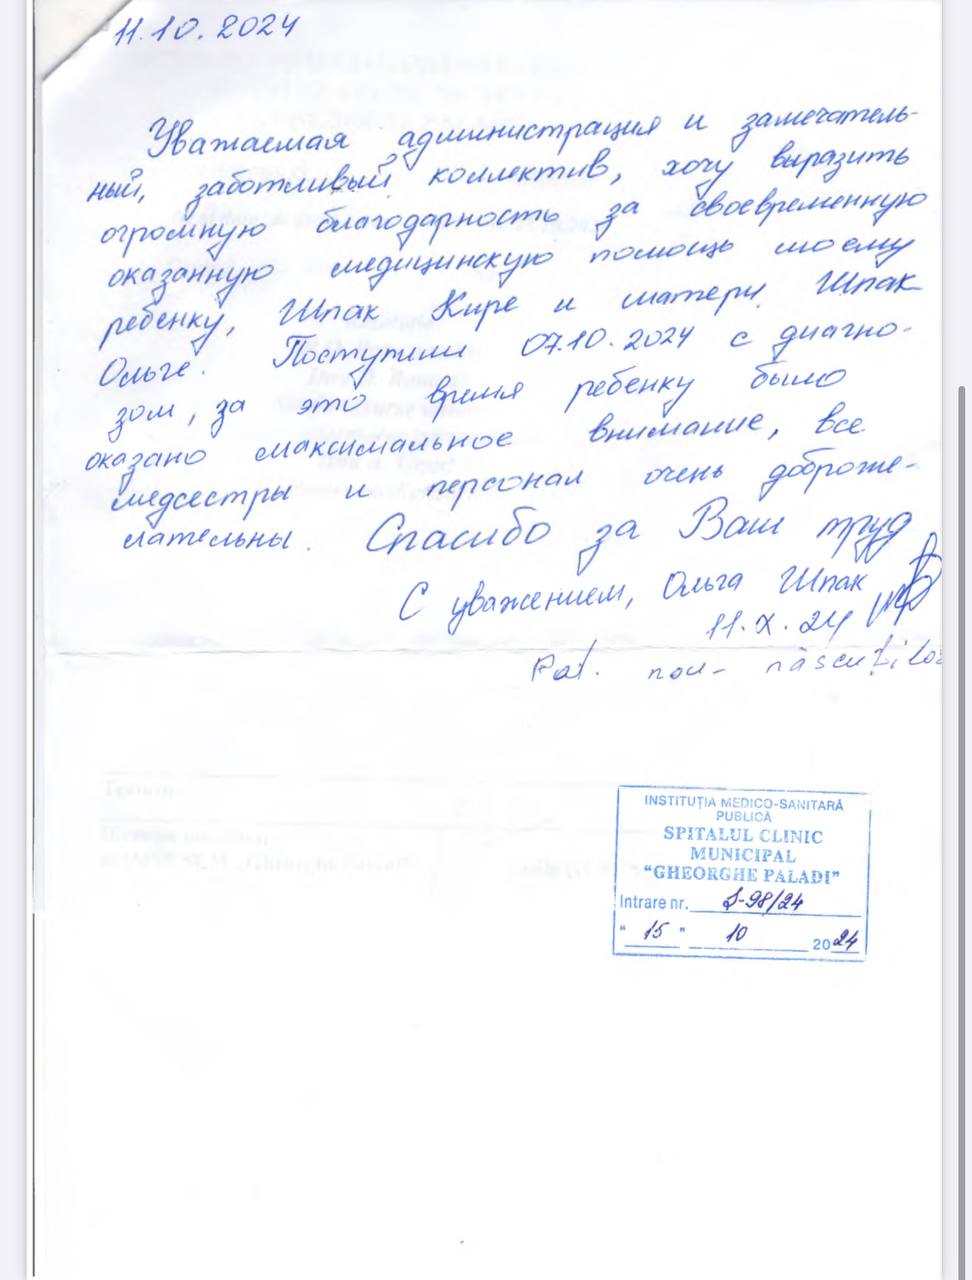 11.10.2024
Уважаемая администрация и замечатель-
ный, заботливый коллектив, хочу выразить
огромную благодарность за своевременную
оказанную медицинскую помощь моему
ребенку, Шпак Кире и матери Шпак
Ольге. Поступили 07.10.2024 с диагно-
зом, за это время ребенку было
оказано максимальное внимание, все
медсестры и персонал очень доброже-
лательны. Спасибо за Ваш труд
С уважением, Ольга Шпак
11.X.24
Pat. nou-născuților
INSTITUȚIA MEDICO-SANITARĂ
PUBLICĂ
SPITALUL CLINIC
MUNICIPAL
"GHEORGHE PALADI"
Intrare nr. S-98/24
"15" 10 2024